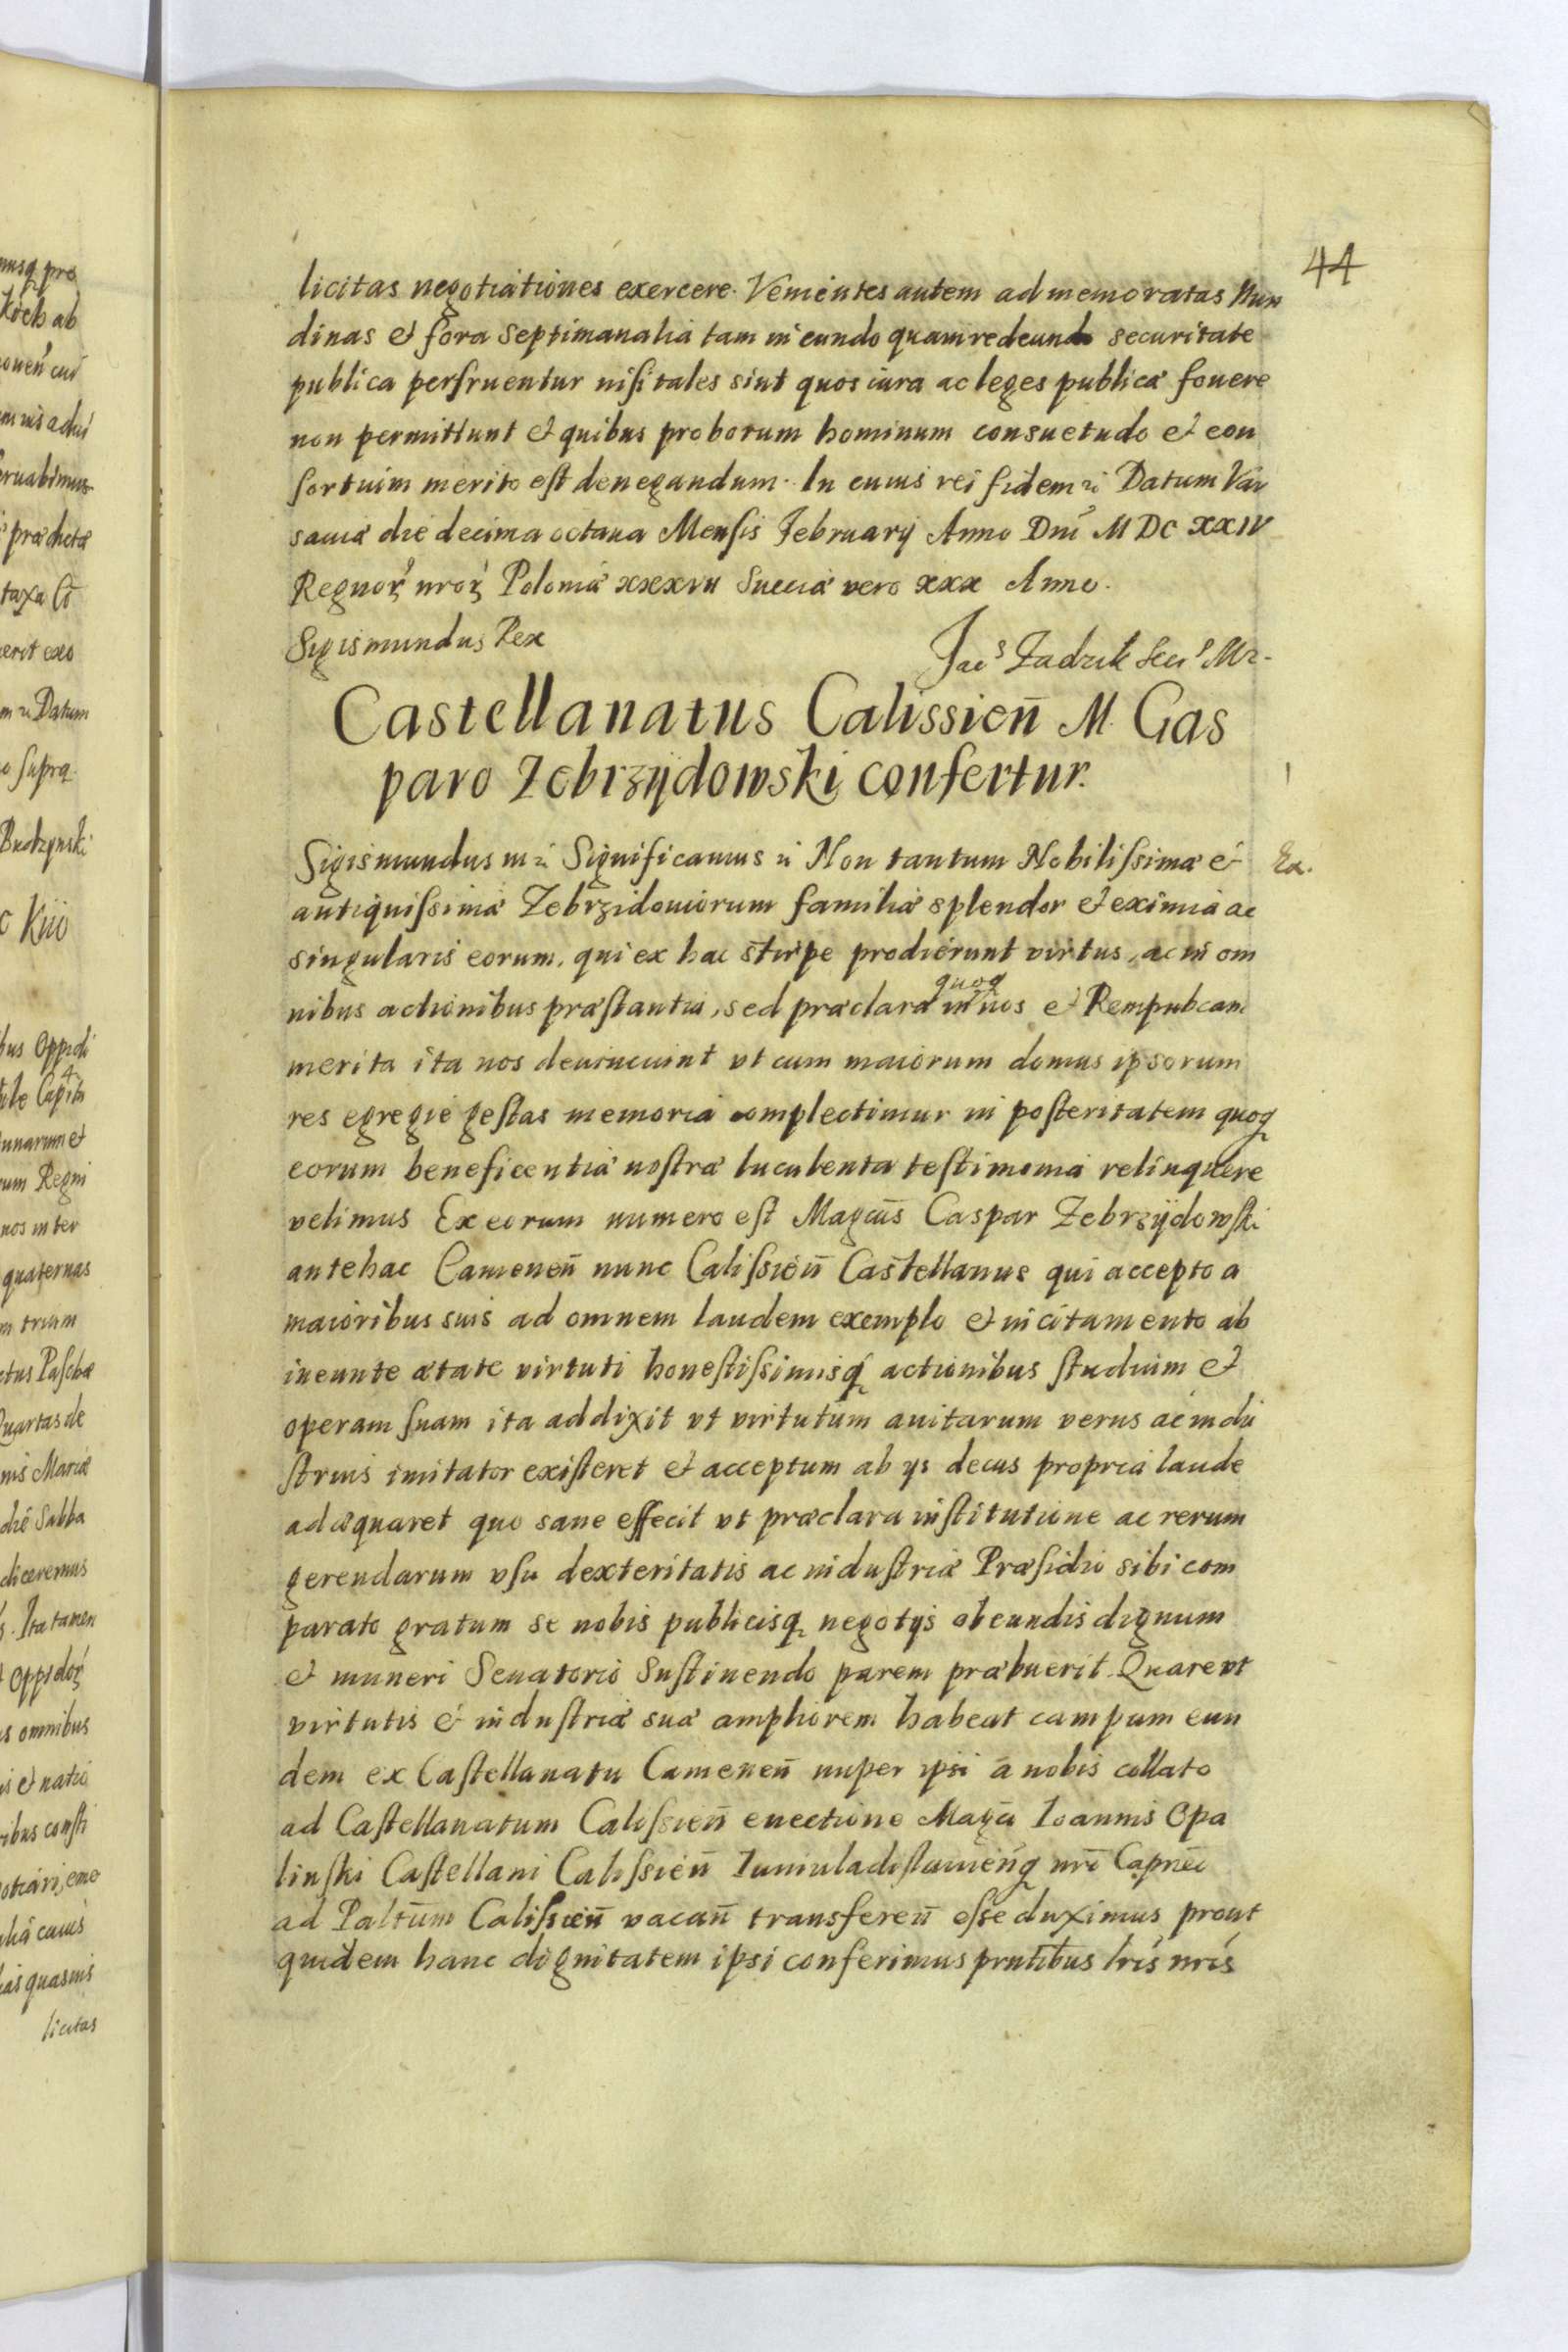 44
licitas negotiationes exercere. Venientes autem ad memoratas Nun
dinas et fora septimanalia tam in eundo quam redeundo securitate
publica perfruentur nisi tales sint quos iura ac leges publicæ fovere
non permittunt et quibus proborum hominum consuetudo et con
sortium merito est denegandum. In cuius rei fidem Datum Var
saviæ die decima octava Mensis February Anno Dnī M DC XXIV
Regnoꝝ nroꝝ Poloniæ xxxvii Sueciæ vero xxx Anno.
Sigismundus Rex
Jac⁹ Zadzik Secr⁹ Mr.
Castellanatus Calissien̄ M. Gas
paro Zebrzÿdowski confertur.
Sigismundus Significamus Non tantum Nobilissimæ et
Ex.
antiquissimæ Zebrzidoviorum familiæ splendor et eximia ac
singularis eorum, qui ex hac stirpe prodierunt virtus, ac in om
nibus actionibus præstantia, sed præclara quoq in nos et Rempubcam
merita ita nos devinciunt vt cum maiorum domus ipsorum
res egregie gestas memoria complectimur in posteritatem quoq
eorum beneficentiæ nostræ luculenta testimonia relinquere
velimus Ex eorum numero est Magcus Caspar Zebrzÿdowski
antehac Camenen̄ nunc Calissien̄ Castellanus qui accepto a
maioribus suis ad omnem laudem exemplo et incitamento ab
ineunte ætate virtuti honestissimisq actionibus studium et
operam suam ita addixit vt virtutum avitarum verus ac indu
strius imitator existeret et acceptum ab ys decus propria laude
adæquaret quo sane effecit vt præclara institutione ac rerum
gerendarum vsu dexteritatis ac industriæ Præsidio sibi com
parato gratum se nobis publicisq negotys obeundis dignum
et muneri Senatorio sustinendo parem præbuerit. Quare vt
virtutis et industriæ suæ ampliorem habeat campum eun
dem ex Castellanatu Camenen̄ nuper ipsi a nobis collato
ad Castellanatum Calissien̄ evectione Magci Ioannis Opa
linski Castellani Calissien̄ Iuniuladislavien̄q nrī Capnei
ad Paltum Calissien̄ vacan̄ transferen̄ esse duximus prout
quidem hanc dignitatem ipsi conferimus prntibus lris nris